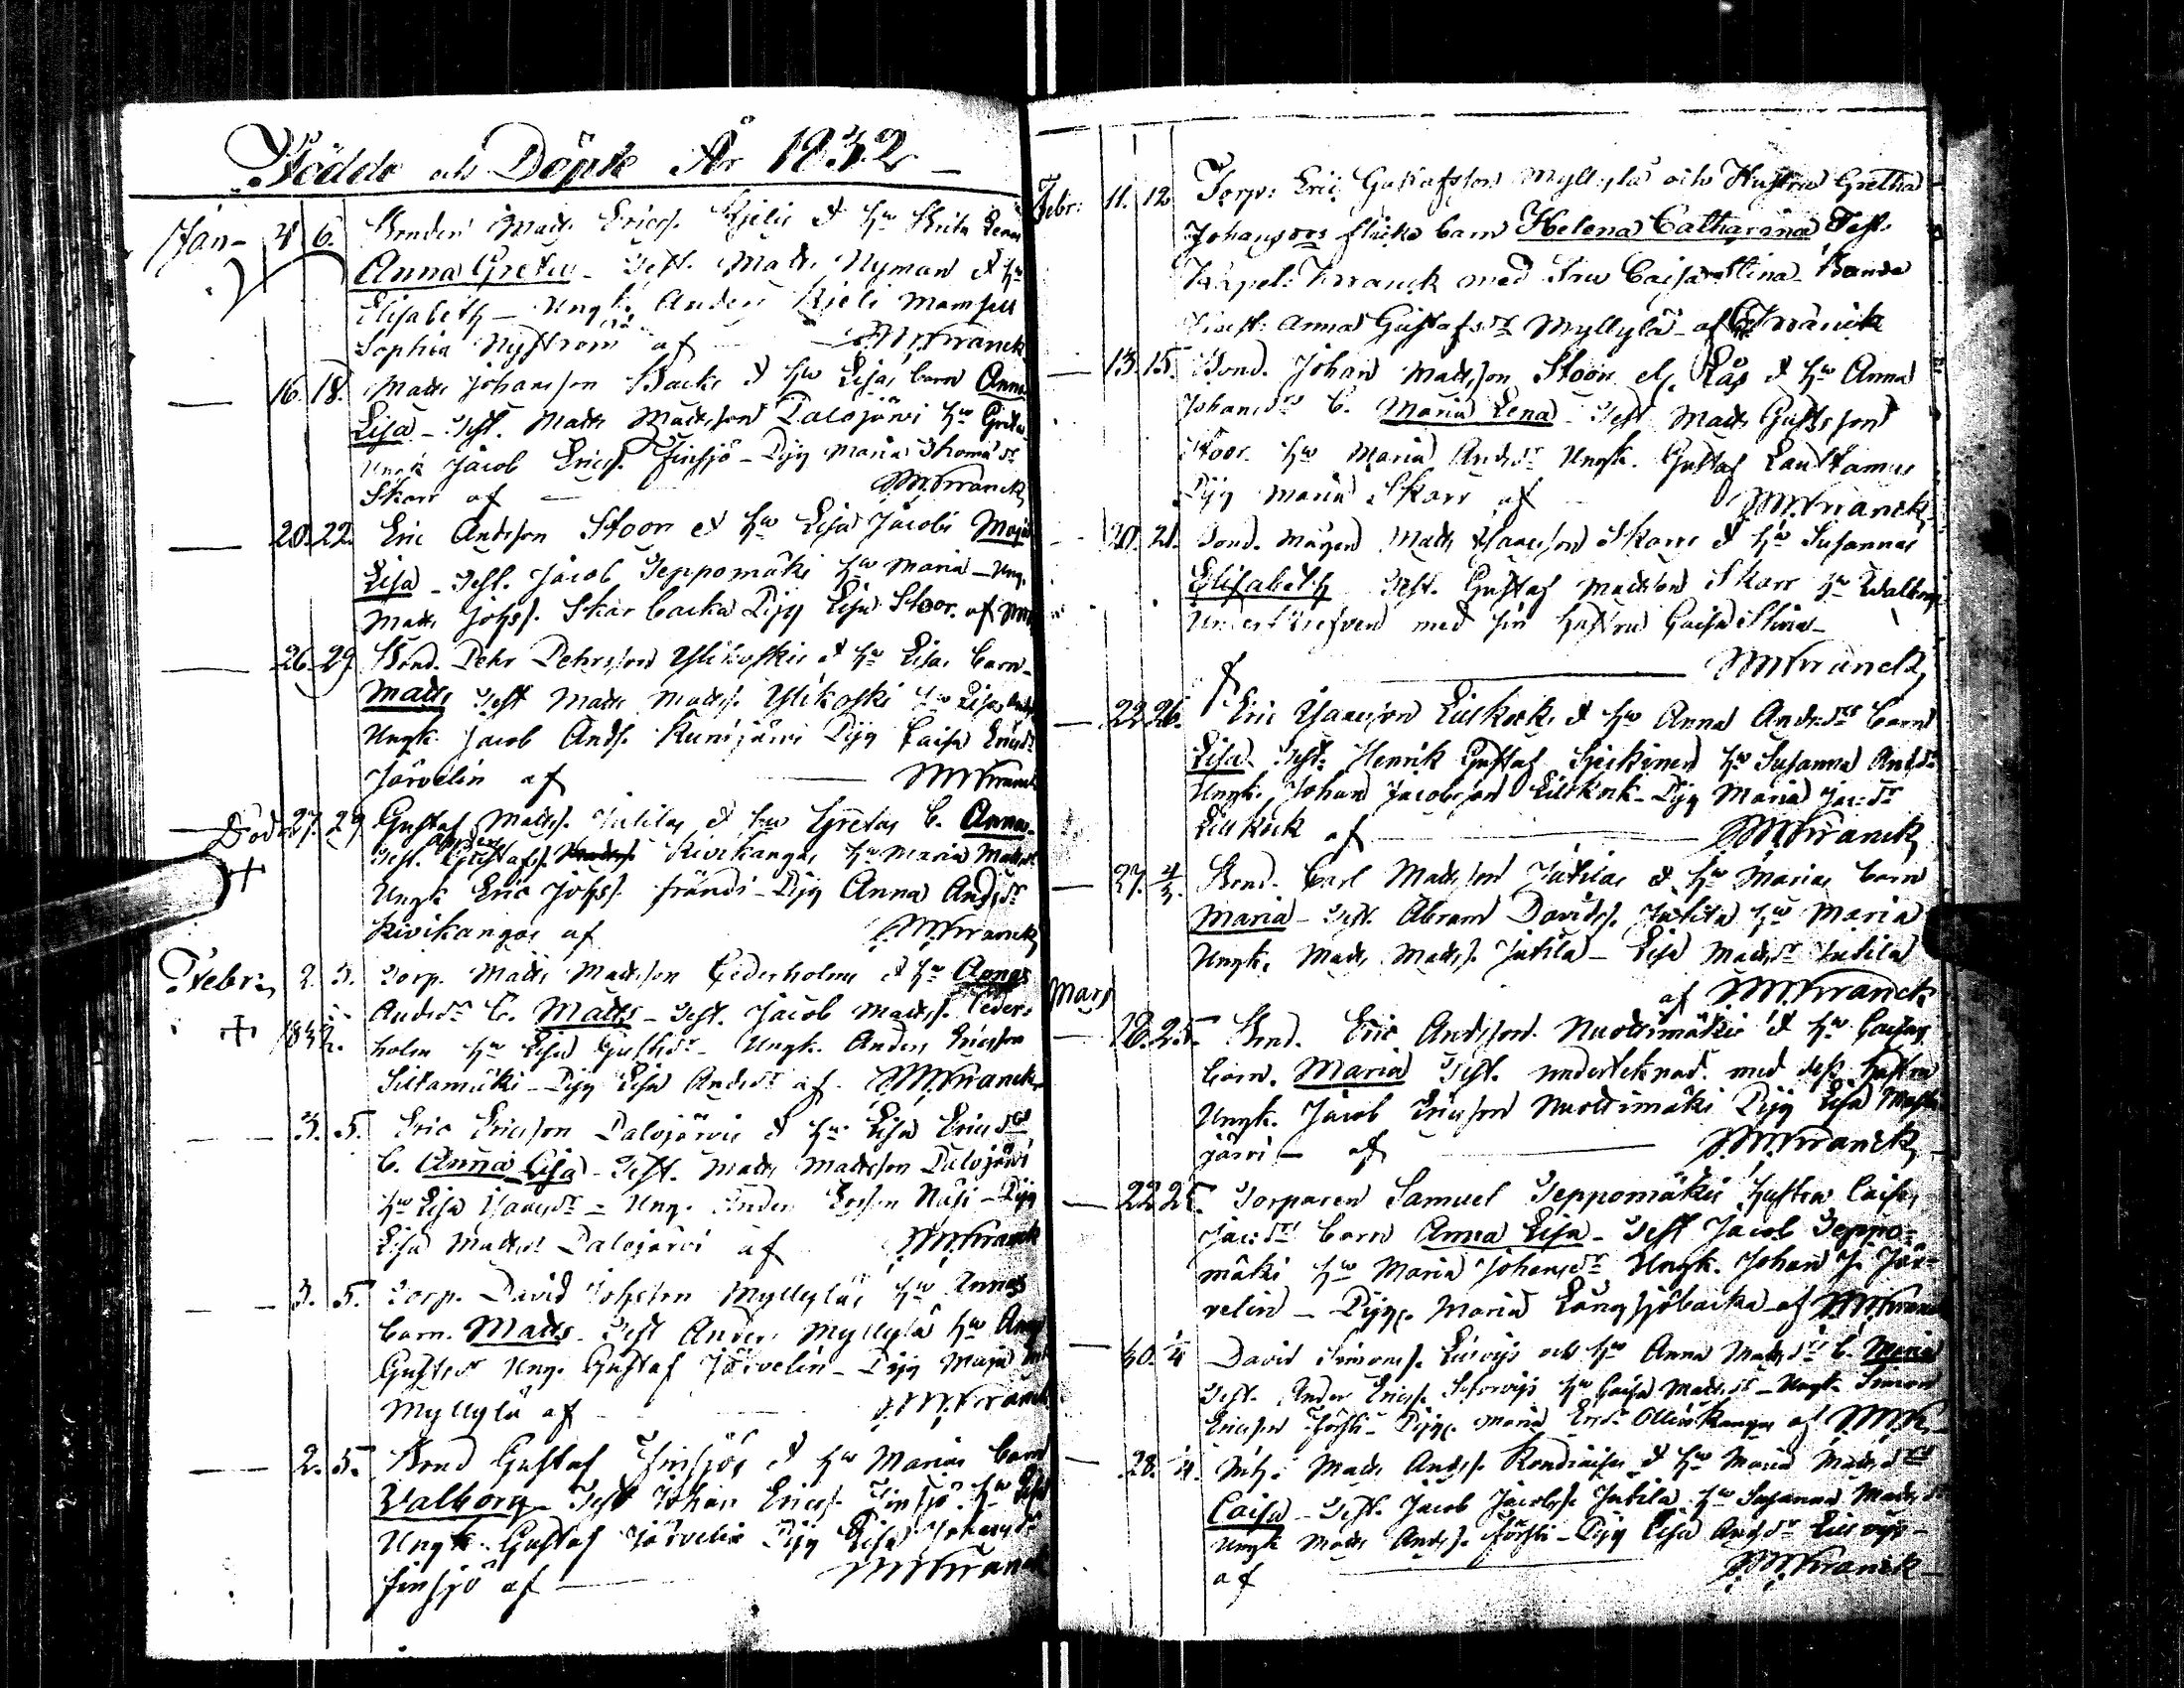 Födde och Döpte År 1832
Jan- 4 6. Bonden Matts Ericss. Kjelis & hu Brita Lenas
Anna Greta - Test. Matts Nyman & hu
Elisabeth - Ungk. Anders Kieli Mamsell
Sophia Nyström af M. Wranck
16. 18. Matts Johansson Backs & hu Lisas barn Anna
Lisa - Test. Matts Mattsson Dalojärvi hu Greta
Ungk Jacob Ericss. Finsjö - Pig Maria Thomasdr
Skarr af M. Wranck
20. 22. Eric Andsson Stoor & hu Lisa Jacobs Maja
Lisa - Test. Jacob Seppomäki hu Maria - Ung.
Matts Johss. Skarbacka Pig Lisa Stoor. af
26. 29 Bond. Pehr Pehrsson Ylikoskis & hu Lisas barn
Matts Test Matts Mattss. Ylikoski hu Lisa
Ungk. Jacob Andss. Kunijärvi Pig Caisa Ericsdr
Järvelin af M. Wranck
Död 27. 29 Gustaf Mattss. Jutilas & hu Gretas b. Anna
Test. Gustafs. Kivikangas hu Maria Mattsdr
Ungk Eric Johss. Frändi - Pig Anna Andsdr
Kivikangas af M. Wranck
Febr: 2. 3. Torp. Matts Mattsson Cederholms & hu Annas
Andsdr b. Matts - Test. Jacob Mattss. Ceder-
+ 1832. holm hu Lisa Gustdr - Ungk. Anders Ericsson
Siltamäki - Pig Lisa Andsdr af M. Wranck
3. 5. Eric Ericsson Dalojärvis & hu Lisa Ericsdr
b. Anna Lisa - Test. Matts Mattsson Dalojärvi
hu Lisa Isaacsdr - Ung. Anders Ersson Näsi - Pig
Lisa Mattsdr Dalojärvi af M. Wranck
3. 5. Torp. David Johsson Myllyläs hu Annas
barn. Matts - Test Anders Myllylä hu Anna
Gustsdr Ung. Gustaf Järvelin - Pig Maja
Myllylä af M. Wranck
2. 5. Bond Gustaf Finsjös & hu Marias barn
Valborg - Test Johan Ericss. Finsjö hu Lisa
Ungk. Gustaf Järvelin Pig Lisa Johansdr
Finsjö af M. Wranck
Febr: 11. 12. Torp: Eric Gustafsson Myllylä och Hustru Gretha
Johansdrs flicko barn Helena Catharina Test.
Kapel. Wranck med Fru Caisa Stina - Bonde
Anna Gustafsdr Myllylä - af Wranck
13. 15. Bond. Johan Mattsson Stoor el. Lås & hu Anna
Johansdrs b. Maria Lena - Test Matts Gustsson
Stoor. hu Maria Andsdr Ungk. Gustaf Lautamus
Pig Maria Skarr af M. Wranck
20. 21. Bond. Mågen Matts Isaacsson Skarrs & hu Susannas
Elisabeth Test. Gustaf Mattsson Skarr hu Walborg
Underskrefven med sin Hustru Caisa Stina -
af M. Wranck
22 26. Eric Isaacsson Lillkocks & hu Anna Andsdrs barn
Lisa - Test. Henrik Gustaf Heikinen hu Susanna Andsdr
Ungk. Johan Jacobsson Lillkock - Pig Maria Jacsdr
Lillkock af M. Wranck
27. 4/3. Bond. Carl Mattsson Jutilas & hu Marias barn
Maria - Test. Abram Davidss. Jutila hu Maria
Ungk. Matts Mattss. Jutila - Lisa Mattsdr Jutila
af M. Wranck
Mars
18. 25. Bond. Eric Andsson Nuottimäkis & hu Caisas
barn. Maria Test. undertecknad med dess hustru
Ungk. Jacob Ericsson Nuottimäki Pig Lisa
järvi - af M. Wranck
22 25. Torparen Samuel Seppomäkis hustru Caisas
Jacsdrs barn Anna Lisa - Test Jacob Seppo-
mäki hu Maria Johansdr Ungk. Johan J. Jär-
velin - Pig. Maria Långsjöbacka af M. Wranck
30. 1/4 David Simonss. och hu Anna Mattsdrs b. Maria
Test. Anders Ericss. hu Caisa Mattsdr - Ungk. Simon
Ericsson Försti - Pig. Maria Ersdr Ollinkangas af M. W.
28. 1/4. Matts Andss. & hu Maria Mattsdrs
Caisa - Test. Jacob Jacobss. Jutila hu Susanna Mattsdr
Ungk Matts Andss. Försti - Pig Lisa Andsdr
af M. Wranck